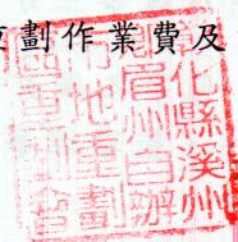 重劃作業費及
彰化縣溪州
鄉眉州自辦
市地重劃
區重劃會